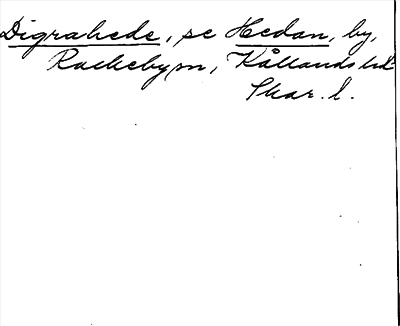 Digrahede, se Hedan, by,
Rackeby sn, Kållands hd
Skar. l.